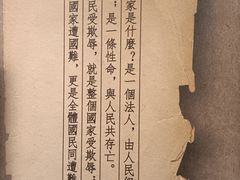 家是什麼？是一個法人，由人民組
；是一條性命，與人民共存亡。
民受欺辱，就是整個國家受欺辱；
國家遭國難，更是全體國民同遭難